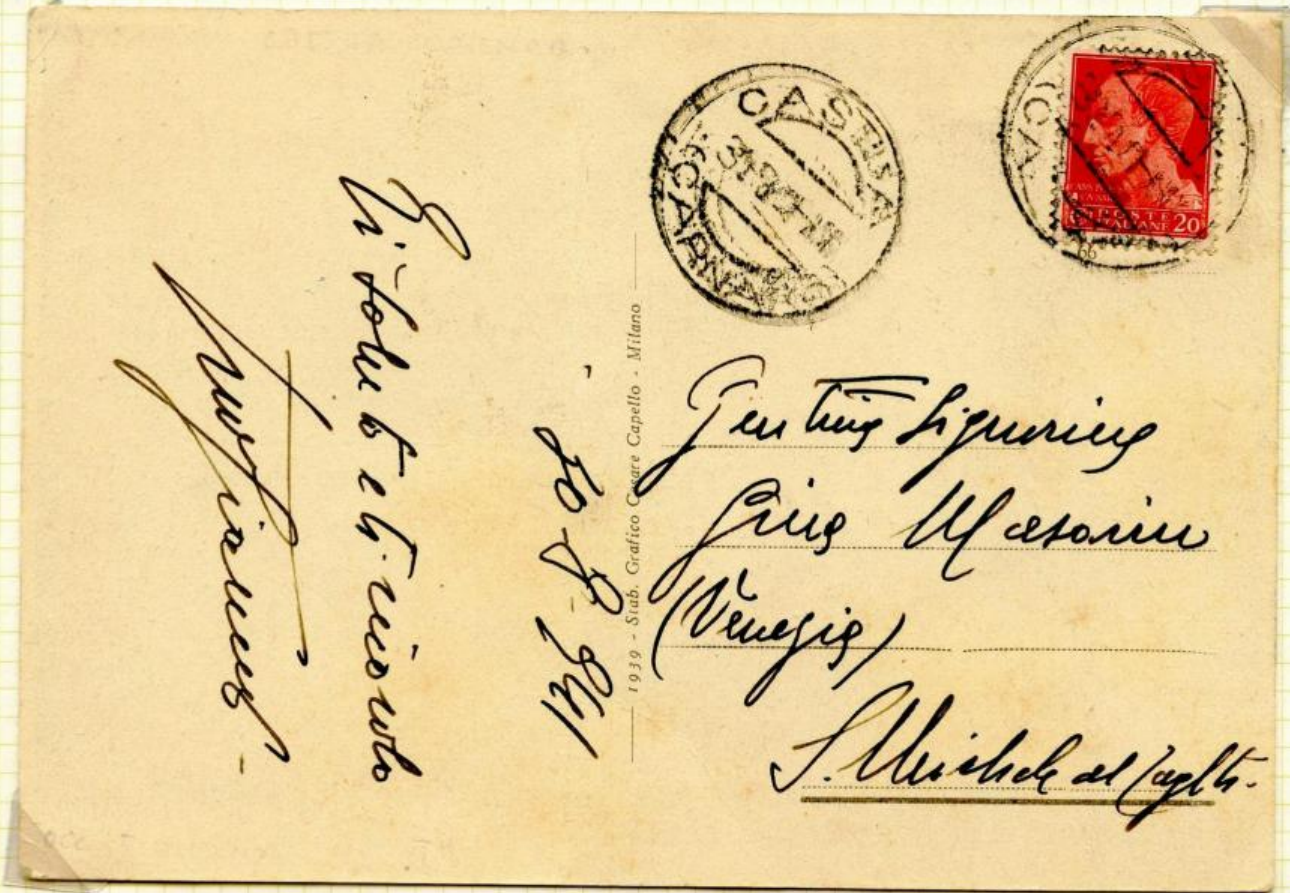 Ti saluto e ti ricordo
30-8-941
1939 - Stab. Grafico Cesare Capello - Milano
CASTUA
(CARNARO)
31.8.41-XIX
(CA
POSTE
ITALIANE 20
Gent.ma Signorina
Gina
(Venezia)
S. Michele al Taglto.